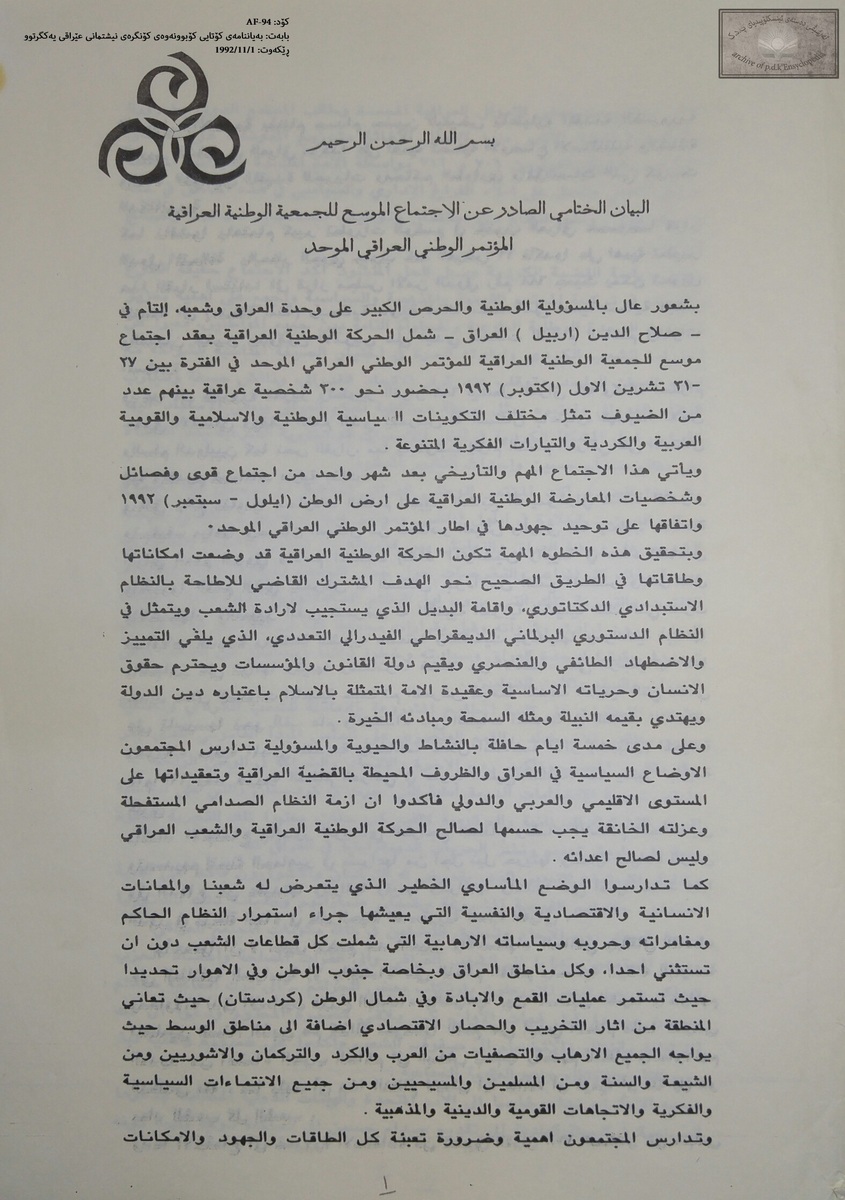 کۆد: AF-94
بابەت: بەیاننامەی کۆتایی کۆبوونەوەی کۆنگرەی نیشتمانی عێراقی یەکگرتوو
ڕێکەوت: 1992/11/1
archive of p.d.k Encyclopedia
بسم الله الرحمن الرحيم
البيان الختامي الصادر عن الاجتماع الموسع للجمعية الوطنية العراقية
المؤتمر الوطني العراقي الموحد
بشعور عال بالمسؤولية الوطنية والحرص الكبير على وحدة العراق وشعبه، إلتأم في
ـ صلاح الدين (اربيل ) العراق ـ شمل الحركة الوطنية العراقية بعقد اجتماع
موسع للجمعية الوطنية العراقية للمؤتمر الوطني العراقي الموحد في الفترة بين ٢٧
-٣١ تشرين الاول (اكتوبر) ١٩٩٢ بحضور نحو ٣٠٠ شخصية عراقية بينهم عدد
من الضيوف تمثل مختلف التكوينات السياسية الوطنية والاسلامية والقومية
العربية والكردية والتيارات الفكرية المتنوعة .
ويأتي هذا الاجتماع المهم والتأريخي بعد شهر واحد من اجتماع قوى وفصائل
وشخصيات المعارضة الوطنية العراقية على ارض الوطن (ايلول - سبتمبر) ١٩٩٢
واتفاقها على توحيد جهودها في اطار المؤتمر الوطني العراقي الموحد.
وبتحقيق هذه الخطوه المهمة تكون الحركة الوطنية العراقية قد وضعت امكاناتها
وطاقاتها في الطريق الصحيح نحو الهدف المشترك القاضي للاطاحة بالنظام
الاستبدادي الدكتاتوري، واقامة البديل الذي يستجيب لارادة الشعب ويتمثل في
النظام الدستوري البرلماني الديمقراطي الفيدرالي التعددي، الذي يلغي التمييز
والاضطهاد الطائفي والعنصري ويقيم دولة القانون والمؤسسات ويحترم حقوق
الانسان وحرياته الاساسية وعقيدة الامة المتمثلة بالاسلام باعتباره دين الدولة
ويهتدي بقيمه النبيلة ومثله السمحة ومبادئه الخيرة .
وعلى مدى خمسة ايام حافلة بالنشاط والحيوية والمسؤولية تدارس المجتمعون
الاوضاع السياسية في العراق والظروف المحيطة بالقضية العراقية وتعقيداتها على
المستوى الاقليمي والعربي والدولي فأكدوا ان ازمة النظام الصدامي المستفحلة
وعزلته الخانقة يجب حسمها لصالح الحركة الوطنية العراقية والشعب العراقي
وليس لصالح اعدائه .
كما تدارسوا الوضع المأساوي الخطير الذي يتعرض له شعبنا والمعانات
الانسانية والاقتصادية والنفسية التي يعيشها جراء استمرار النظام الحاكم
ومغامراته وحروبه وسياساته الارهابية التي شملت كل قطاعات الشعب دون ان
تستثني احدا، وكل مناطق العراق وبخاصة جنوب الوطن وفي الاهوار تحديدا
حيث تستمر عمليات القمع والابادة وفي شمال الوطن (كردستان) حيث تعاني
المنطقة من اثار التخريب والحصار الاقتصادي اضافة الى مناطق الوسط حيث
يواجه الجميع الارهاب والتصفيات من العرب والكرد والتركمان والاشوريين ومن
الشيعة والسنة ومن المسلمين والمسيحيين ومن جميع الانتماءات السياسية
والفكرية والاتجاهات القومية والدينية والمذهبية .
وتدارس المجتمعون اهمية وضرورة تعبئة كل الطاقات والجهود والامكانات
١